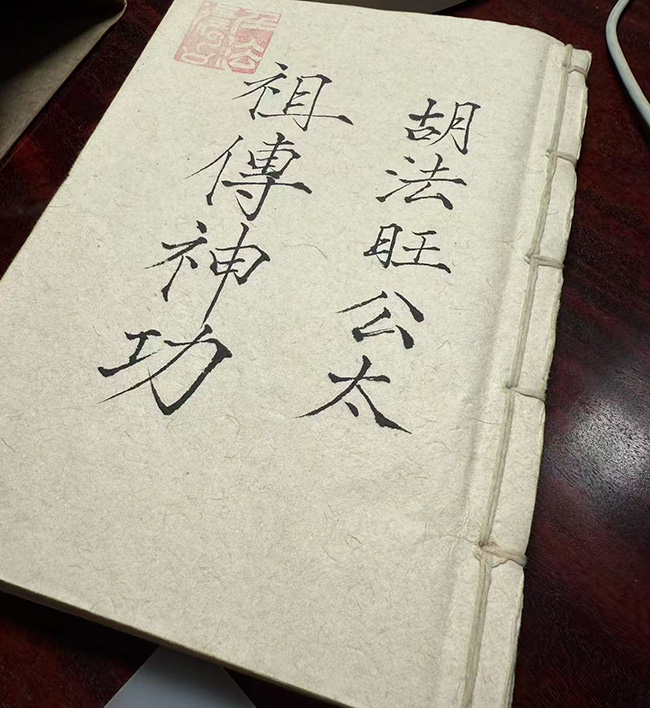 胡法旺公太
祖傳神功